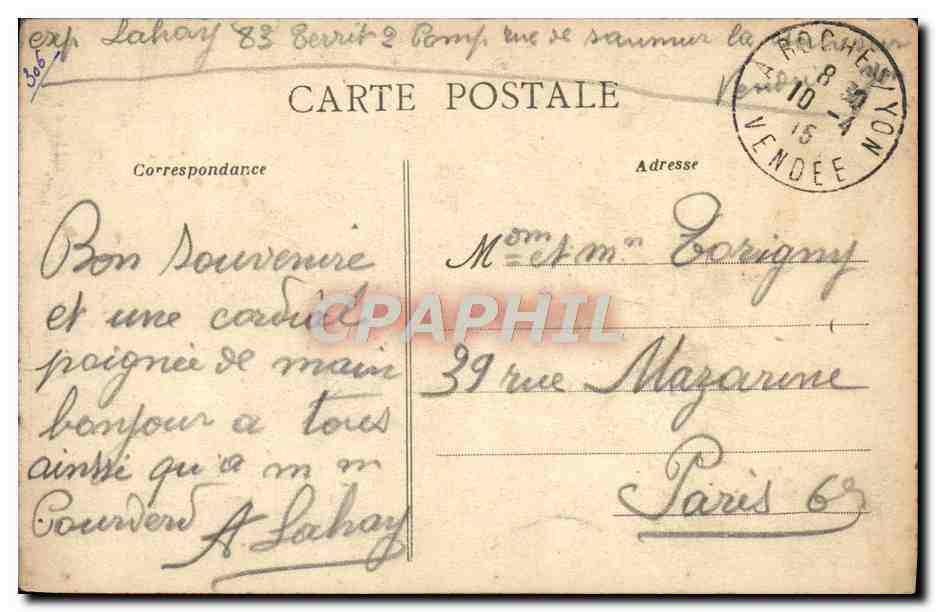 exp Lahay 83 Territ 2 Comp rue de saumur la
Vendée
306
LA ROCHE S YON
8 30
10 -4
15
VENDÉE
CARTE POSTALE
Correspondance
Adresse
Bon souvenire
et une cordial
poignée de main
bonjour a tous
ainssi qu'a m m
A Lahay
Mom et mn Torigny
39 rue Mazarine
Paris 6e
CPAPHIL